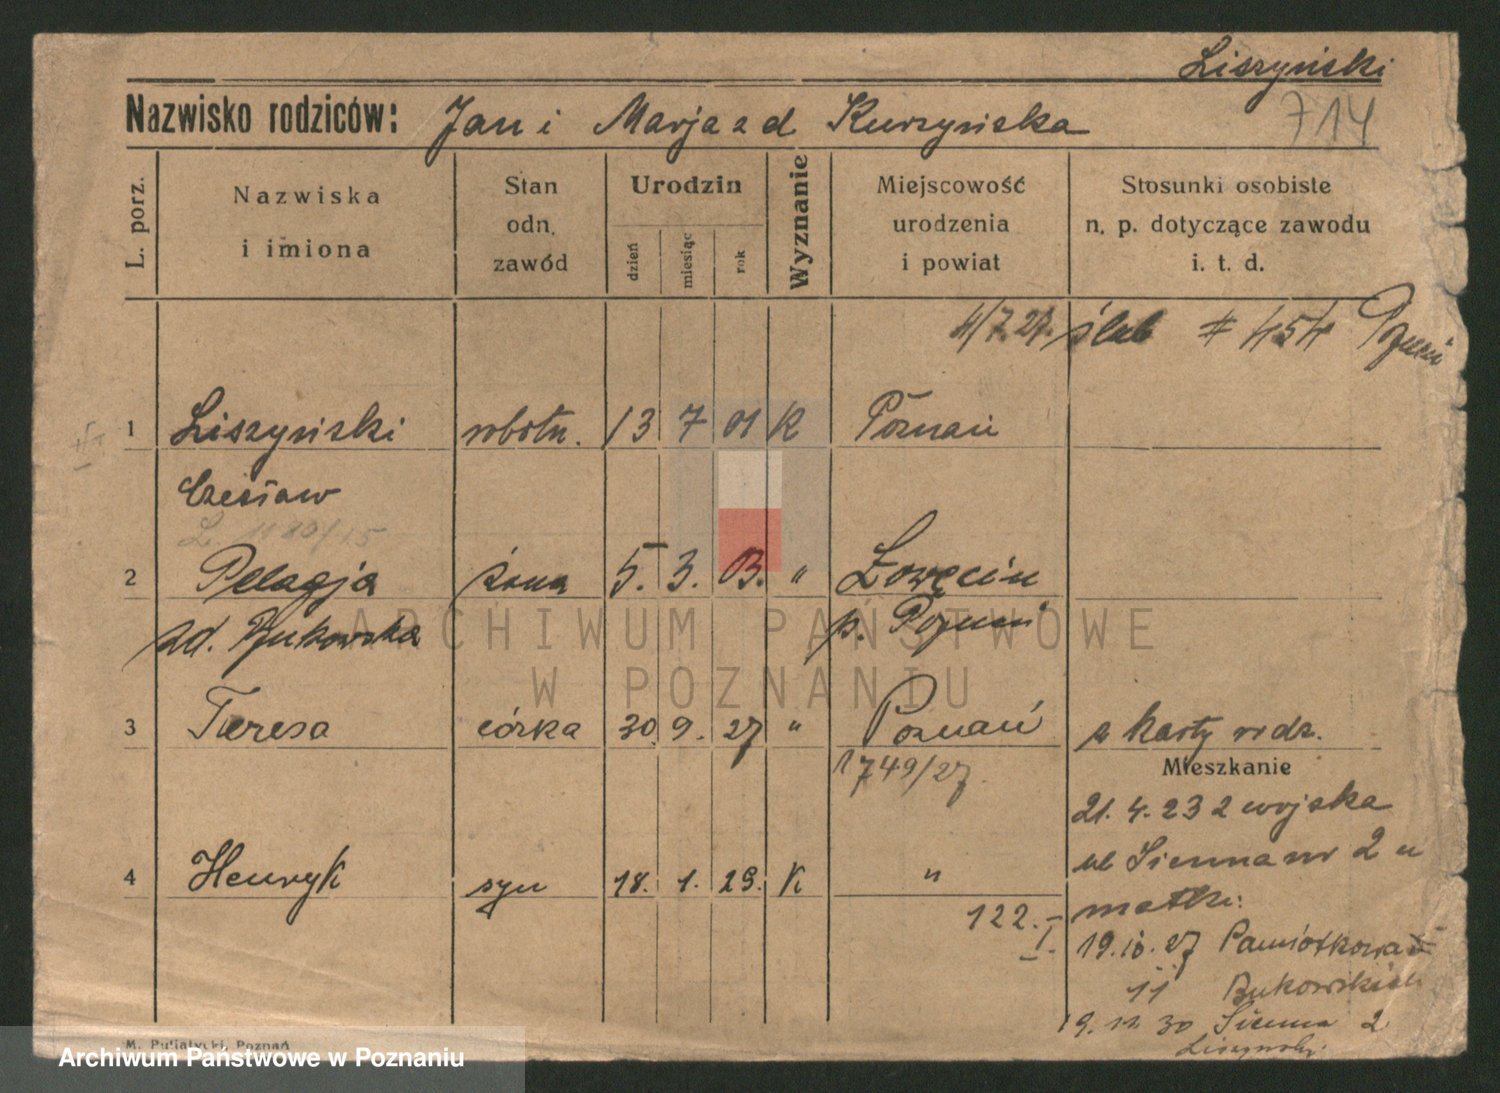 Liszyński
714
Nazwisko rodziców: Jan i Marja zd Kurzyńska
L. porz.
Nazwiska i imiona
Stan odn. zawód
Urodzin
dzień miesiąc rok
Wyznanie
Miejscowość urodzenia i powiat
Stosunki osobiste n. p. dotyczące zawodu i. t. d.
4/7.27. ślub # 454 Poznań
1 Liszyński robotn. 13 7 01 K Poznań
Czesław
L. 1180/15
2 Pelagja żona 5. 3. 03. " Łowęcin
zd. Bukowska p. Poznań
3 Teresa córka 30. 9. 27 " Poznań z karty urdz.
1749/27.
Mieszkanie
21. 4. 23 z wojska
ul Sienna nr 2 u
4 Henryk syn 18. 1. 29. K "
matki.
122. I.
19.10.27 Pamiątkowa
11 Bukowskich
9. 11 30 Sienna 2
Liszyński.
M. Putiatycki, Poznań
ARCHIWUM PAŃSTWOWE
W POZNANIU
Archiwum Państwowe w Poznaniu